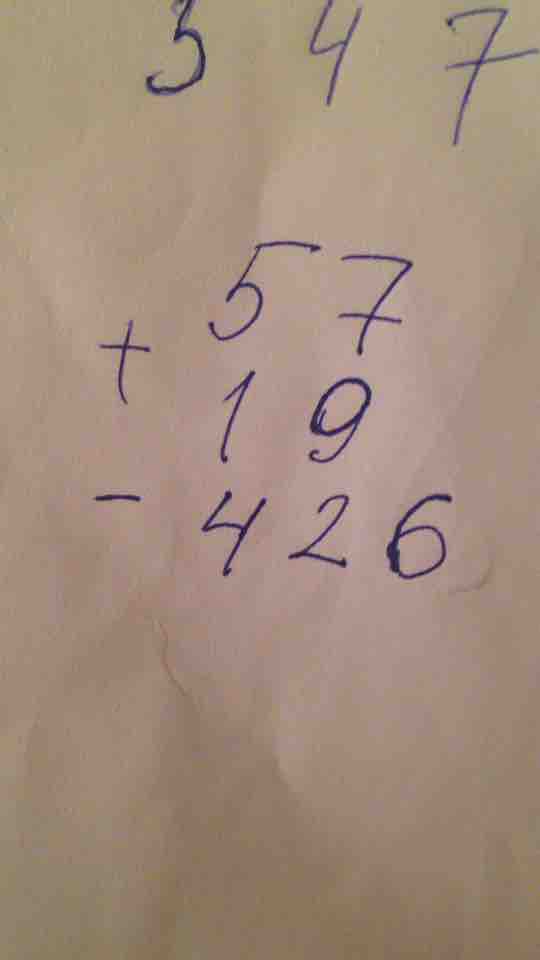 3 4 7
57
+
19
- 426